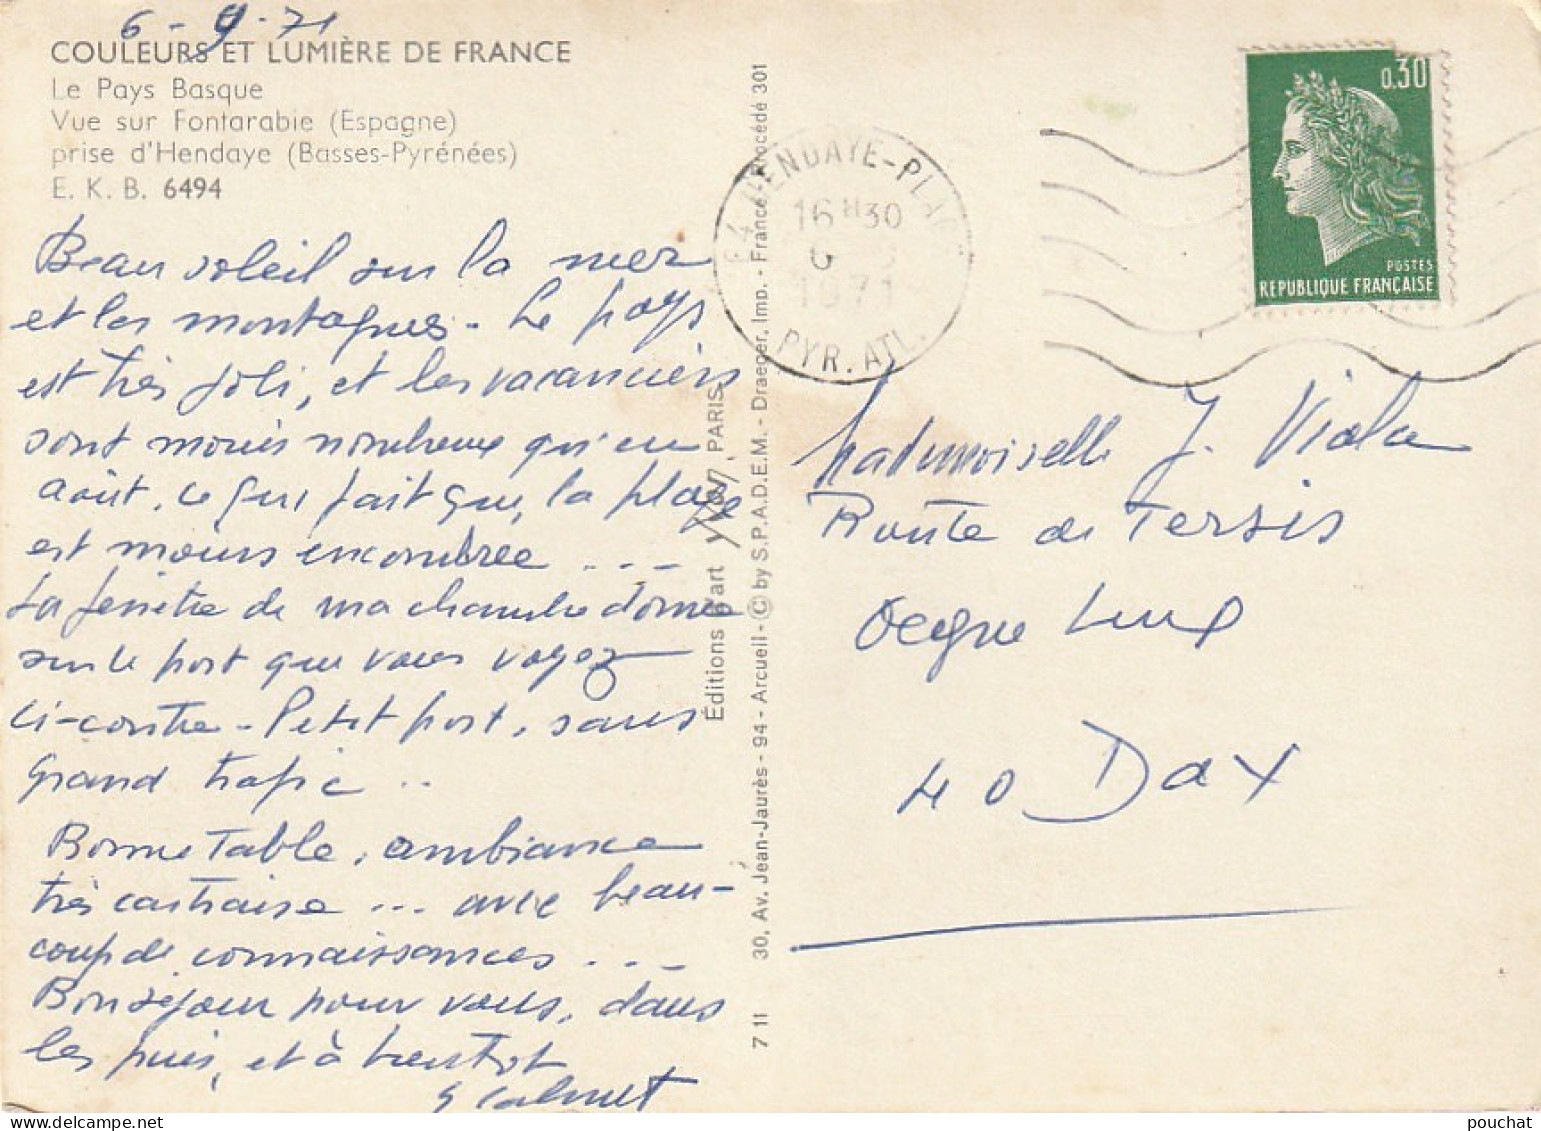 6-9-71
COULEURS ET LUMIÈRE DE FRANCE
Le Pays Basque
Vue sur Fontarabie (Espagne)
prise d'Hendaye (Basses-Pyrénées)
E. K. B. 6494
Beau soleil sur la mer
et les montagnes - Le pays
est très joli, et les vacanciers
sont moins nombreux qu'en
août, ce qui fait que, la plage
est moins encombrée ...
La fenêtre de ma chambre donne
sur le port que vous voyez
ci-contre - Petit port, sans
grand trafic ..
Bonne Table, ambiance
très castraise ... avec beau-
coup de connaissances ...
Bon séjour pour vous, dans
les pins, et à bientôt
Éditions d'art Yvon, PARIS
30, Av. Jean-Jaurès - 94 - Arcueil - © by S.P.A.D.E.M. - Draeger, Imp. - France, Procédé 301
7 11
64 HENDAYE-PLAGE
16 H 30
6
1971
PYR. ATL.
0.30
POSTES
REPUBLIQUE FRANÇAISE
Mademoiselle J. Viola
Route de Tersis
40 Dax
pouchat